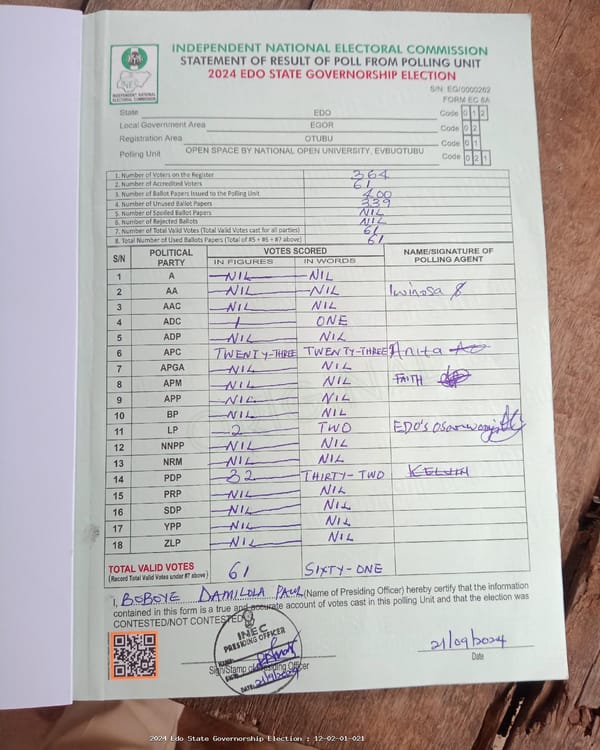 INDEPENDENT NATIONAL ELECTORAL COMMISSION
STATEMENT OF RESULT OF POLL FROM POLLING UNIT
2024 EDO STATE GOVERNORSHIP ELECTION
INEC
INDEPENDENT NATIONAL
ELECTORAL COMMISSION
S/N: EG/0000262
FORM EC 8A
State EDO Code 0 1 2
Local Government Area EGOR Code 0 2
Registration Area OTUBU Code 0 1
Polling Unit OPEN SPACE BY NATIONAL OPEN UNIVERSITY, EVBUOTUBU Code 0 2 1
1. Number of Voters on the Register 364
2. Number of Accredited Voters 61
3. Number of Ballot Papers Issued to the Polling Unit 400
4. Number of Unused Ballot Papers 339
5. Number of Spoiled Ballot Papers NIL
6. Number of Rejected Ballots NIL
7. Number of Total Valid Votes (Total Valid Votes cast for all parties) 61
8. Total Number of Used Ballots Papers (Total of #5 + #6 + #7 above) 61
S/N POLITICAL PARTY VOTES SCORED NAME/SIGNATURE OF POLLING AGENT
IN FIGURES IN WORDS
1 A NIL NIL
2 AA NIL NIL Iwinosa
3 AAC NIL NIL
4 ADC 1 ONE
5 ADP NIL NIL
6 APC TWENTY-THREE TWENTY-THREE Anita
7 APGA NIL NIL
8 APM NIL NIL FAITH
9 APP NIL NIL
10 BP NIL NIL
11 LP 2 TWO EDO'S
12 NNPP NIL NIL
13 NRM NIL NIL
14 PDP 32 THIRTY-TWO KELVIN
15 PRP NIL NIL
16 SDP NIL NIL
17 YPP NIL NIL
18 ZLP NIL NIL
TOTAL VALID VOTES 61 SIXTY-ONE
(Record Total Valid Votes under #7 above)
I, BOBOYE DAMILOLA PAUL (Name of Presiding Officer) hereby certify that the information
contained in this form is a true and accurate account of votes cast in this polling Unit and that the election was
CONTESTED/NOT CONTESTED
INEC
PRESIDING OFFICER
NAME:
SIGN:
DATE: 21/9/2024
Sign/Stamp of Presiding Officer
21/09/2024
Date
2024 Edo State Governorship Election : 12-02-01-021